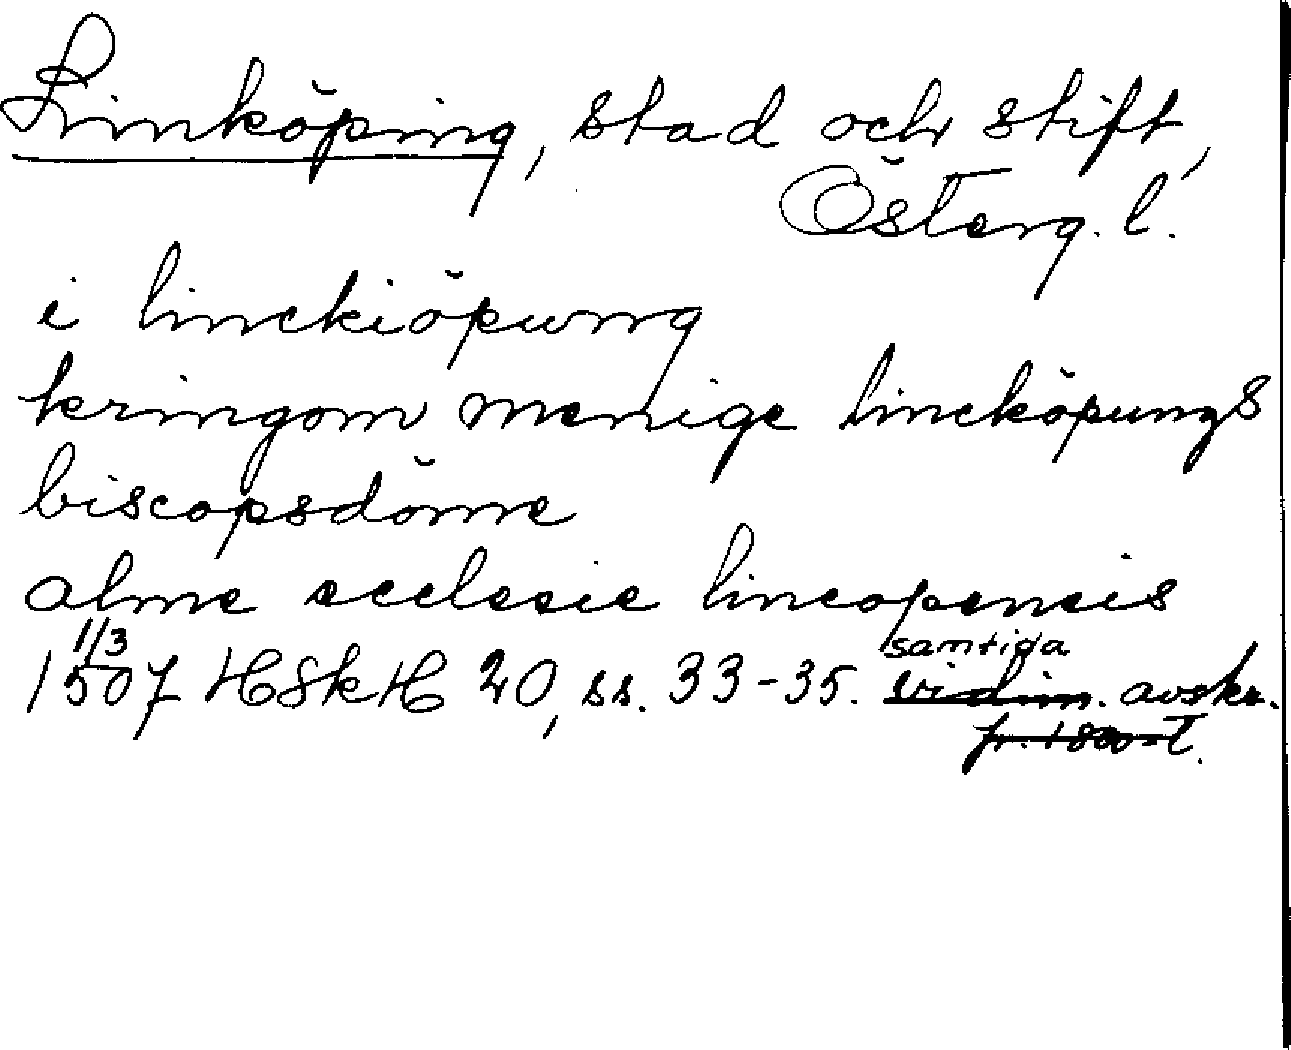 Linköping, stad och stift,
Österg. l.
i linckiöpung
kringom menige lincköpungs
biscopsdöme
alme ecclesie lincopensis
1/3 samtida
1507 HSkH 20, ss. 33-35. vidim. avskr.
fr. 1800-t.